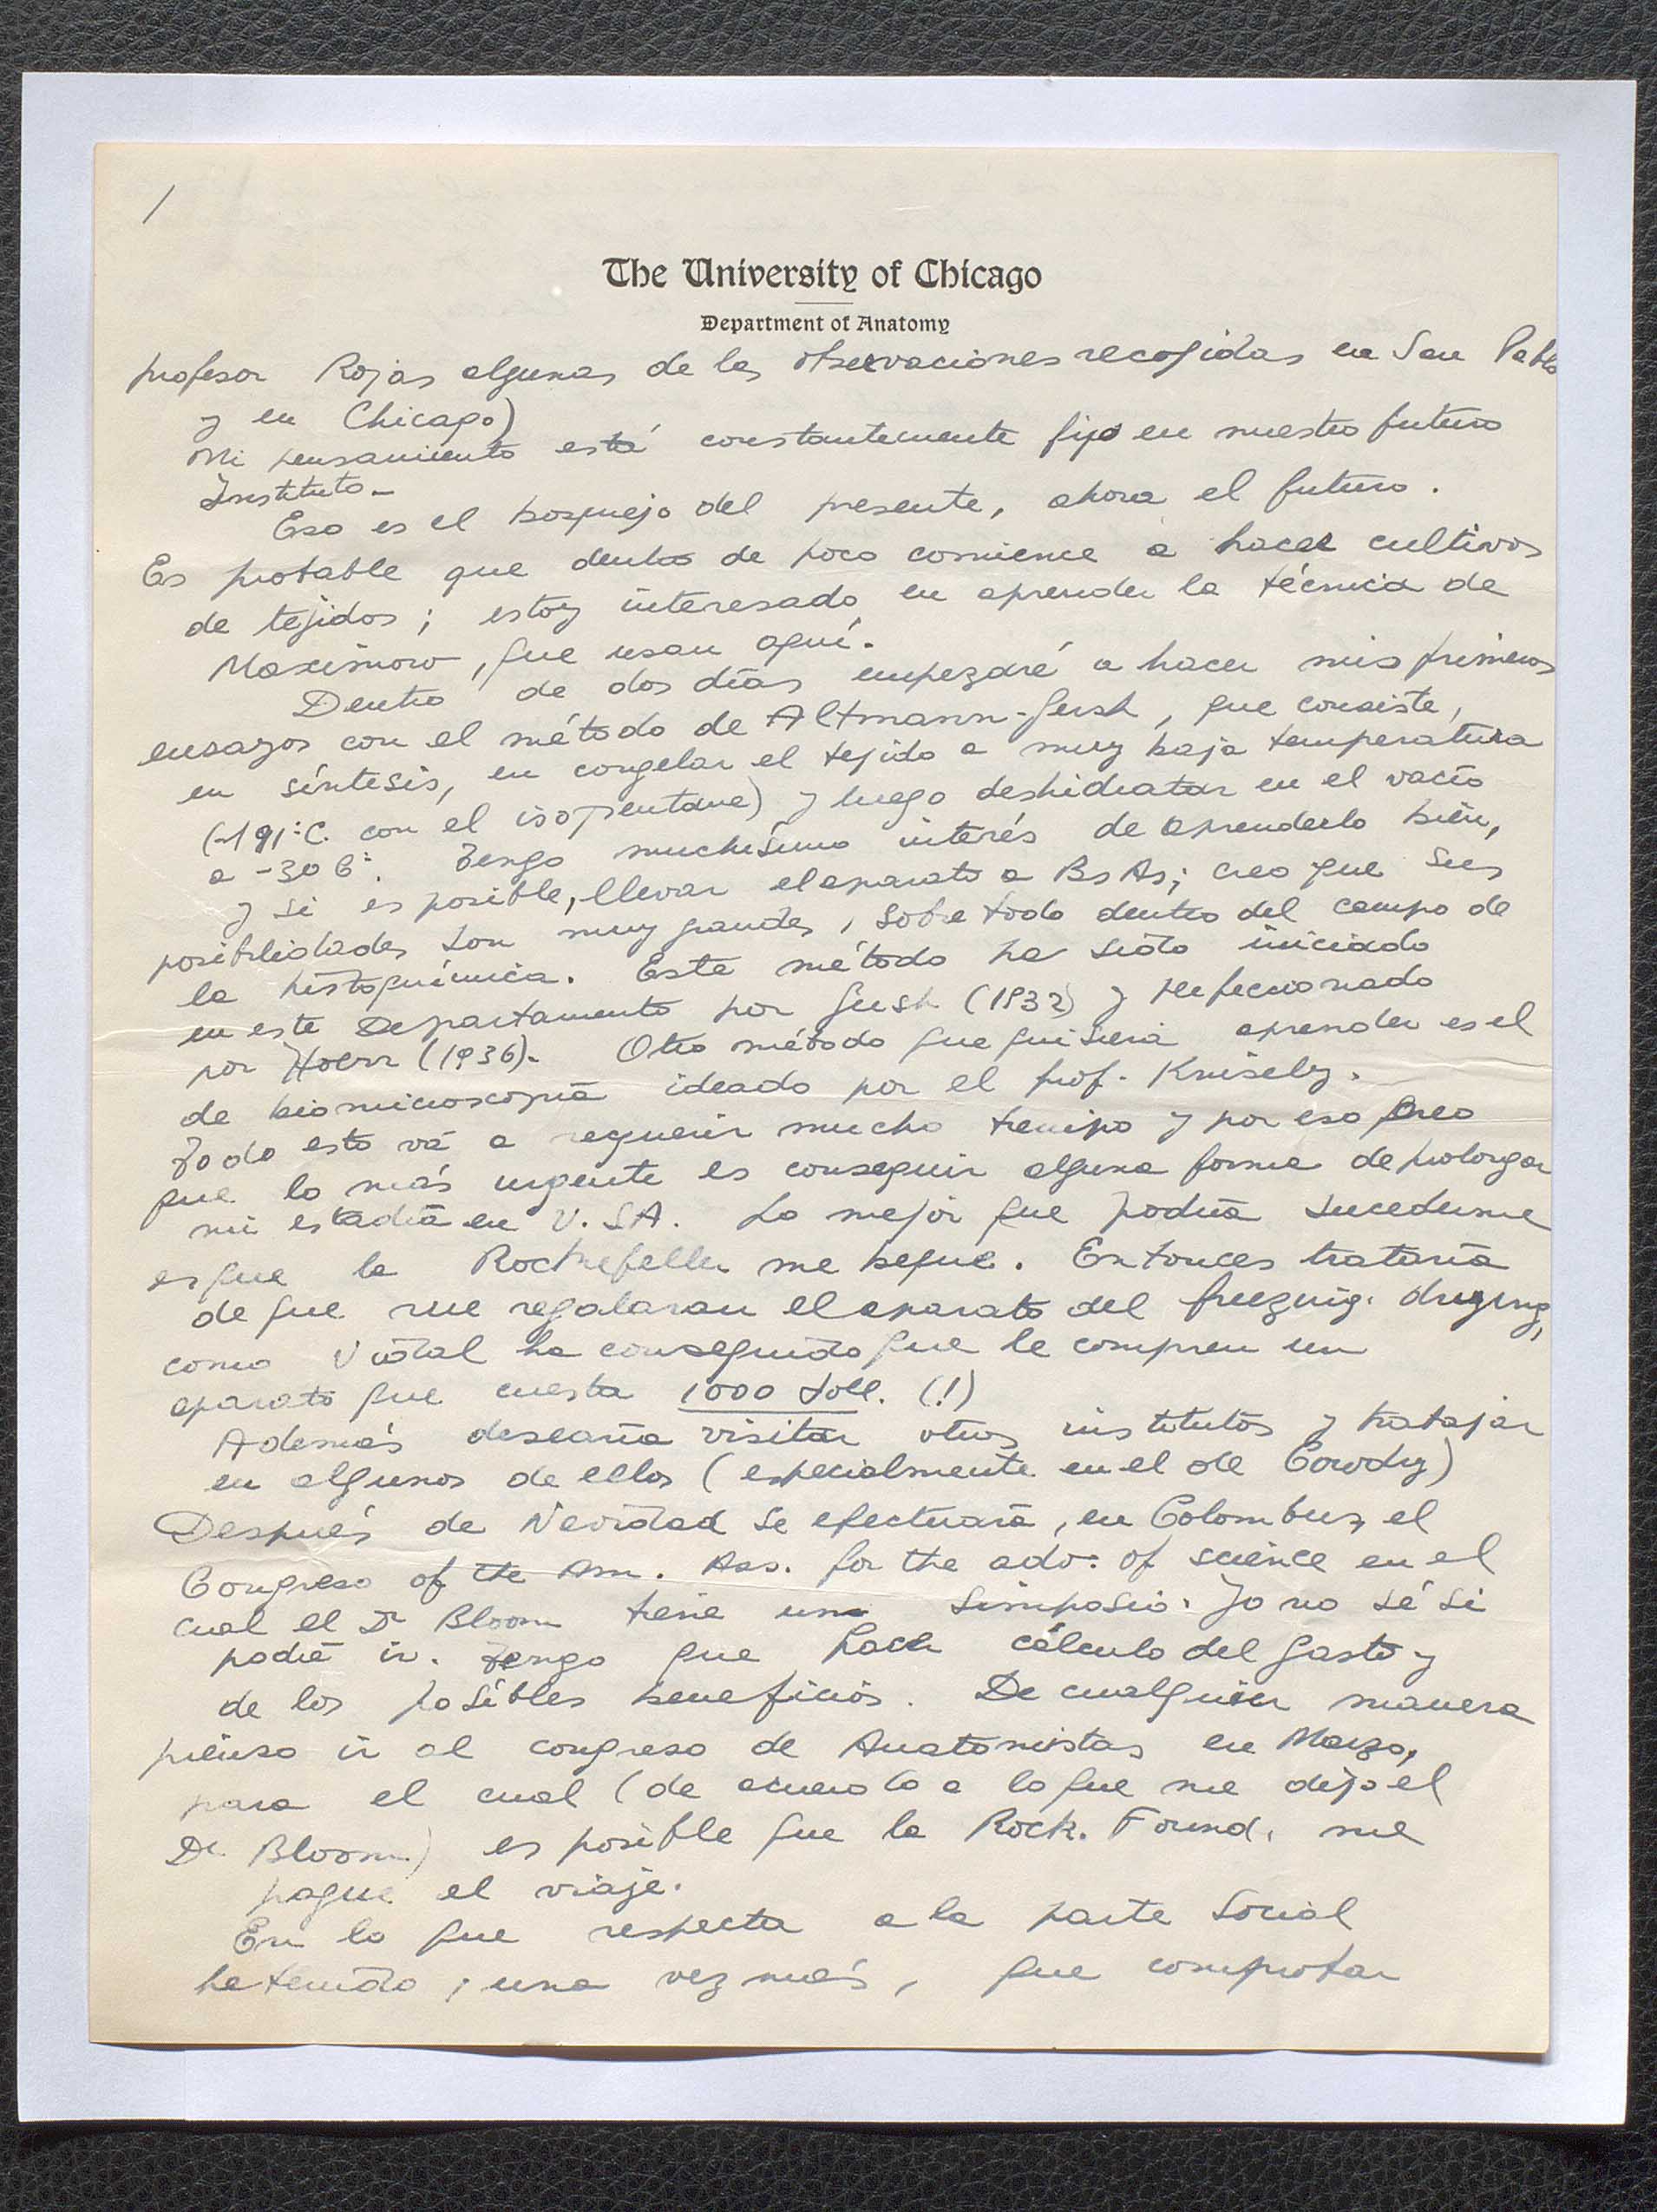 /
The University of Chicago
Department of Anatomy
profesor Rojas algunas de las observaciones recogidas en San Pablo
y en Chicago)
Mi pensamiento está constantemente fijo en nuestro futuro
Instituto.-
Eso es el bosquejo del presente, ahora el futuro.
Es probable que dentro de poco comience a hacer cultivos
de tejidos; estoy interesado en aprender la técnica de
Maximow, que usan aquí.
Dentro de dos días empezaré a hacer mis primeros
ensayos con el método de Altmann-Gersh, que consiste,
en síntesis, en congelar el tejido a muy baja temperatura
(-191°C. con el isopentane) y luego deshidratar en el vacío
a -30 C°. Tengo muchísimo interés de aprenderlo bien,
y si es posible, llevar el aparato a Bs As; creo que sus
posibilidades son muy grandes, sobre todo dentro del campo de
la histoquímica. Este método ha sido iniciado
en este Departamento por Gersh (1932) y perfeccionado
por Hoerr (1936). Otro método que quisiera aprender es el
de biomicroscopía ideado por el prof. Knisely.
Todo esto vá a requerir mucho tiempo y por eso creo
que lo más urgente es conseguir alguna forma de prolongar
mi estadía en U.S.A. Lo mejor que podría sucederme
es que la Rockefeller me beque. Entonces trataría
de que me regalaran el aparato del freezing. drying,
como Vidal ha conseguido que le compren un
aparato que cuesta 1000 doll. (!)
Además desearía visitar otros institutos y trabajar
en algunos de ellos (especialmente en el de Cowdry)
Después de Navidad se efectuará, en Colombus, el
Congreso of the Am. Ass. for the adv. of science en el
cual el Dr Bloom tiene un simposio. Yo no sé si
podré ir. Tengo que hacer cálculo del gasto y
de los posibles beneficios. De cualquier manera
pienso ir al congreso de Anatomistas en Marzo,
para el cual (de acuerdo a lo que me dijo el
Dr. Bloom) es posible que la Rock. Found. me
pague el viaje.
En lo que respecta a la parte social
he tenido, una vez más, que comprobar